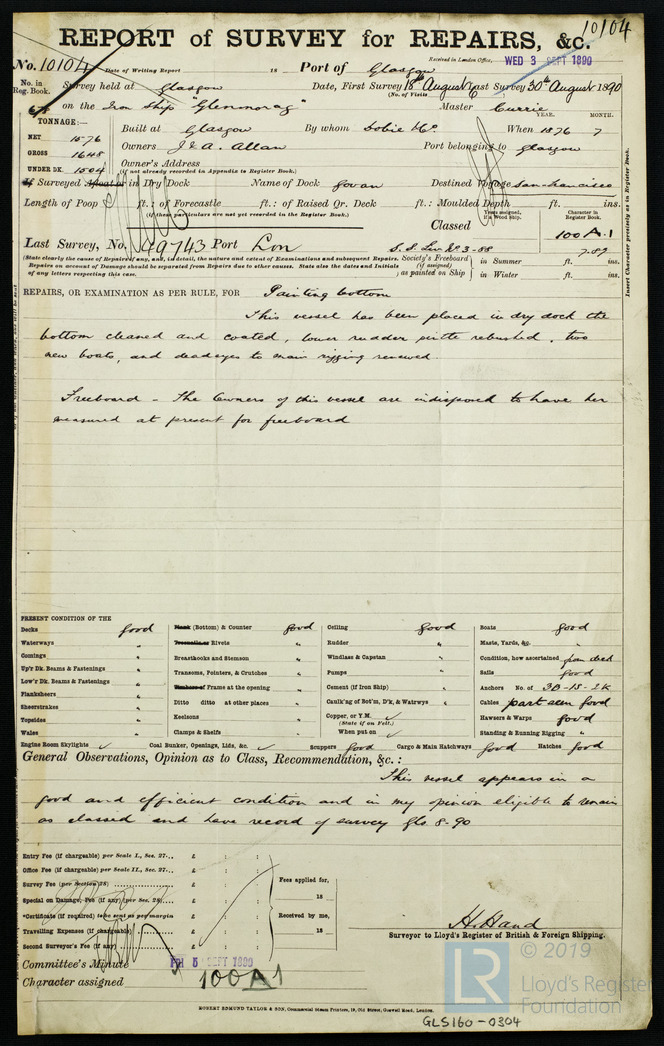 10104
REPORT of SURVEY for REPAIRS, &c.
No. 10104 Date of Writing Report 18 Port of Glasgow Received in London Office, WED 3 SEPT 1890
No. in Reg. Book. Survey held at Glasgow Date, First Survey 18th August Last Survey 30th August 1890
(No. of Visits 6)
on the Iron Ship "Glenmorag" Master Currie
TONNAGE:— YEAR. MONTH.
NET 1576 Built at Glasgow By whom Dobie & Co. When 1876 7
GROSS 1648 Owners J & A. Allan Port belonging to Glasgow
UNDER DK. 1504 Owner's Address
(if not already recorded in Appendix to Register Book.)
If Surveyed Afloat or in Dry Dock Name of Dock Govan Destined Voyage San Francisco
Length of Poop ft.: of Forecastle ft.: of Raised Qr. Deck ft.: Moulded Depth ft. ins.
(if these particulars are not yet recorded in the Register Book.) Years assigned, if a Wood Ship. Character in Register Book.
Classed 100A.1
Last Survey, No. 49743 Port Lon S.S. Lon No 3-88 7.89
(State clearly the cause of Repairs if any, and, in detail, the nature and extent of Examinations and subsequent Repairs. Repairs on account of Damage should be separated from Repairs due to other causes. State also the dates and Initials of any letters respecting this case.
Society's Freeboard (if assigned) as painted on Ship in Summer ft. ins.
in Winter ft. ins.
Insert Character precisely as in Register Book.
REPAIRS, OR EXAMINATION AS PER RULE, FOR Painting bottom
This vessel has been placed in dry dock the
bottom cleaned and coated, lower rudder pintle rebushed, two
new boats, and deadeyes to main rigging renewed.
Freeboard - The Owners of this vessel are indisposed to have her
measured at present for freeboard
PRESENT CONDITION OF THE
Decks good Plank (Bottom) & Counter good Ceiling good Boats good
Waterways " Treenails or Rivets " Rudder " Masts, Yards, &c. "
Comings " Breasthooks and Stemson " Windlass & Capstan " Condition, how ascertained from deck
Up'r Dk. Beams & Fastenings " Transoms, Pointers, & Crutches " Pumps " Sails good
Low'r Dk. Beams & Fastenings " Timbers of Frame at the opening " Cement (if Iron Ship) " Anchors No. of 3B-1S-2K
Planksheers " Ditto ditto at other places " Caulk'g of Bot'm, D'k, & Watrwys " Cables part seen good
Sheerstrakes " Keelsons " Copper, or Y.M. Hawsers & Warps good
Topsides " (State if on Felt.)
Wales " Clamps & Shelfs " When put on Standing & Running Rigging "
Engine Room Skylights Coal Bunker, Openings, Lids, &c. Scuppers good Cargo & Main Hatchways good Hatches good
General Observations, Opinion as to Class, Recommendation, &c.:
This vessel appears in a
good and efficient condition and in my opinion eligible to remain
as classed and have record of survey Gls 8-90
Entry Fee (if chargeable) per Scale I., Sec. 27... £ : :
Office Fee (if chargeable) per Scale II., Sec. 27... £ : :
Survey Fee (per Section 28) £ : : Fees applied for,
Special on Damage, Fee (if any) (per Sec. 28)... £ : : 18
*Certificate (if required) to be sent as per margin £ : : Received by me,
Travelling Expenses (if chargeable) £ : : 18
Second Surveyor's Fee (if any) £ : :
H. Hand
Surveyor to Lloyd's Register of British & Foreign Shipping.
Committee's Minute FRI 5 SEPT 1890
Character assigned 100A1
ROBERT EDMUND TAYLOR & SON, Commercial Steam Printers, 19, Old Street, Goswell Road, London.
GLS160-0304
LR
© 2019
Lloyd's Register
Foundation